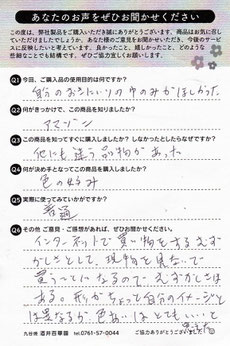 あなたのお声をぜひお聞かせください
この度は、弊社製品をご購入いただき誠にありがとうございます。商品はお気に召し
ていただけましたでしょうか。あなた様のご意見をお聞かせいただき、今後のサービ
スに反映したいと考えています。良かったこと、嬉しかったこと、どのような
些細なことでも結構です。ぜひご協力宜しくお願いします。
Q1 今回、ご購入品の使用目的は何ですか?
自分の
ゆのみがほしかった
Q2 何がきっかけで、この商品を知りましたか?
アマゾン
Q3 この商品を知ってすぐに購入しましたか? しなかったとしたらなぜですか?
他にも違う品物があった
Q4 何が決め手となってこの商品を購入しましたか?
色の好み
Q5 実際に使ってみていかがですか?
普通
Q6 その他 ご意見・ご感想があれば、ぜひお聞かせください。
インターネットで買い物をするむず
かしさとして、現物を見ないで
買うことになるので、むずかしさは
ある。形がちょっと自分のイメージと
は異なるが色あいはとてもいいと
思った
九谷焼 酒井百華園 tel.0761-57-0044
ご協力ありがとうございました